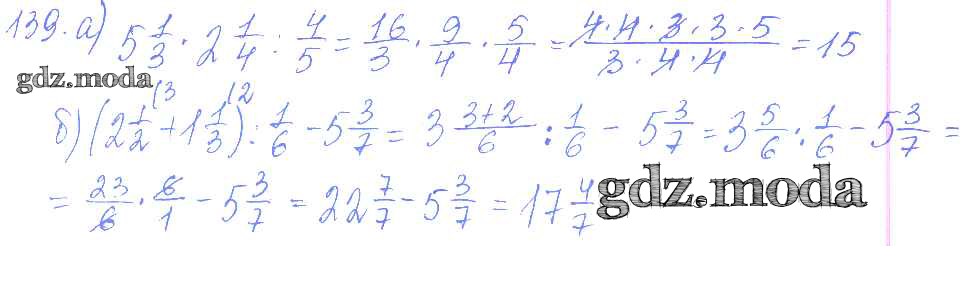 139. а) 5 1/3 · 2 1/4 : 4/5 = 16/3 · 9/4 · 5/4 = 4·4·3·3·5/3·4·4 = 15
gdz.moda
б) (2 1/2 (3 + 1 1/3 (2) : 1/6 − 5 3/7 = 3 3+2/6 : 1/6 − 5 3/7 = 3 5/6 : 1/6 − 5 3/7 =
= 23/6 · 6/1 − 5 3/7 = 22 7/7 − 5 3/7 = 17 4/7
gdz.moda